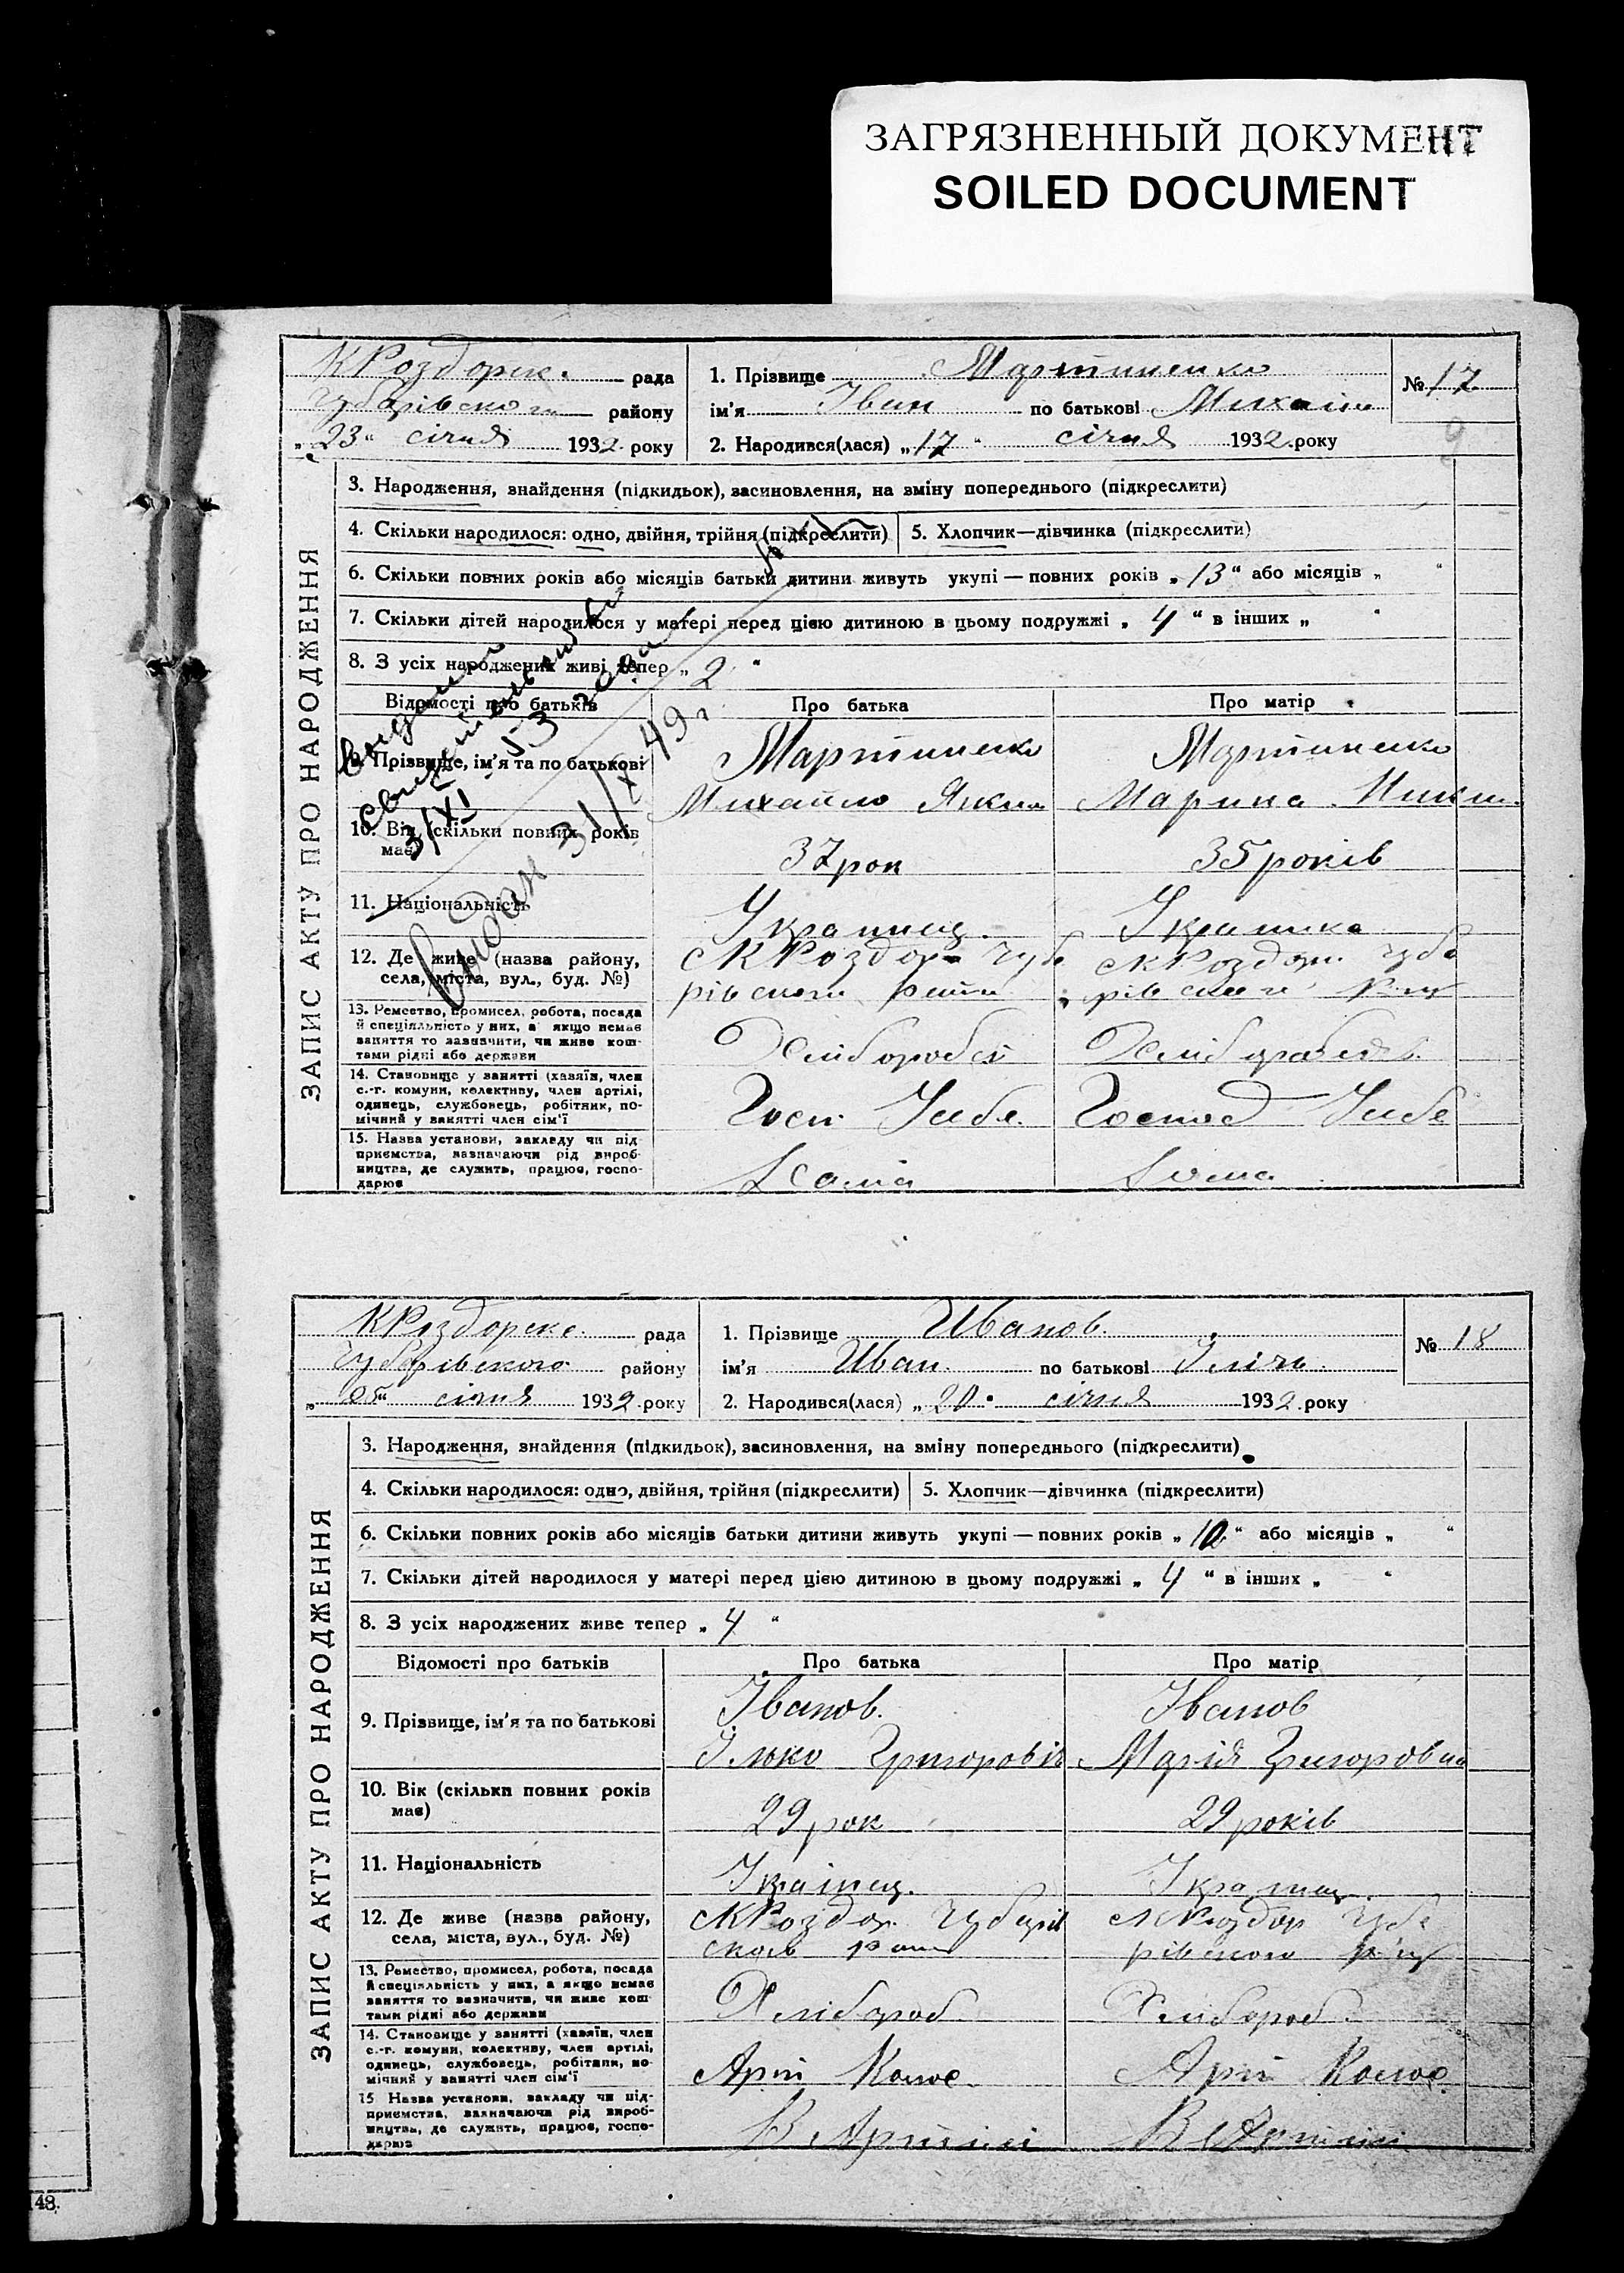 ЗАГРЯЗНЕННЫЙ ДОКУМЕНТ
SOILED DOCUMENT
КРоздорск. рада
Чубарівского району
„23“ січня 1932 року
1. Прізвище Мартиненко
ім'я Іван по батькові Михайл
2. Народився(лася) „17“ січня 1932 року
№ 17
9
ЗАПИС АКТУ ПРО НАРОДЖЕННЯ
3. Народження, знайдення (підкидьок), засиновлення, на зміну попереднього (підкреслити)
4. Скільки народилося: одно, двійня, трійня (підкреслити)
5. Хлопчик—дівчинка (підкреслити)
6. Скільки повних років або місяців батьки дитини живуть укупі — повних років „13“ або місяців „ “
7. Скільки дітей народилося у матері перед цією дитиною в цьому подружжі „4“ в інших „ “
8. З усіх народжених живі тепер „2“
Відомості про батьків Про батька Про матір
9. Прізвище, ім'я та по батькові
Мартиненко Мартиненко
Михайло Яким Марина
10. Вік (скільки повних років має)
37 рок 35 років
11. Національність
Украинец. Украинка
12. Де живе (назва району, села, міста, вул., буд. №)
с КРоздор Чуба с КРоздор. Чуба
рівского рівского
13. Ремество, промисел, робота, посада
й спеціяльність у них, а якщо немає
заняття то зазначити, чи живе кош-
тами рідні або держави
14. Становище у занятті (хазяїн, член
с.-г. комуни, колективу, член артілі,
одинець, службовець, робітник, по-
мічний у занятті член сім'ї
15. Назва установи, закладу чи під-
приємства, зазначаючи рід вироб-
ництва, де служить, працює, госпо-
дарює
Видан 31/X 49 г
3/XI 53
КРоздорско. рада
Чубарівского району
1932 року
1. Прізвище Иванов.
ім'я Иван. по батькові Ілічь
2. Народився(лася) „20“ січня 1932 року
№ 18
ЗАПИС АКТУ ПРО НАРОДЖЕННЯ
3. Народження, знайдення (підкидьок), засиновлення, на зміну попереднього (підкреслити)
4. Скільки народилося: одно, двійня, трійня (підкреслити)
5. Хлопчик—дівчинка (підкреслити)
6. Скільки повних років або місяців батьки дитини живуть укупі — повних років „10“ або місяців „ “
7. Скільки дітей народилося у матері перед цією дитиною в цьому подружжі „4“ в інших „ “
8. З усіх народжених живе тепер „4“
Відомості про батьків Про батька Про матір
9. Прізвище, ім'я та по батькові
Іванов. Іванов
Ілько Григоровіч Марія Григоровна
10. Вік (скільки повних років має)
29 рок 29 років
11. Національність
Українец.
12. Де живе (назва району, села, міста, вул., буд. №)
с КРоздор Чубарів с КРоздор Чуба
рівского
13. Ремество, промисел, робота, посада
й спеціяльність у них, а якщо немає
заняття то зазначити, чи живе кош-
тами рідні або держави
Хлібороб. Хлібороб.
14. Становище у занятті (хазяїн, член
с.-г. комуни, колективу, член артілі,
одинець, службовець, робітник, по-
мічний у занятті член сім'ї
15 Назва установи, закладу чи під-
приємства, зазначаючи рід вироб-
ництва, де служить, працює, госпо-
дарює
В Артілі В Артілі
48.